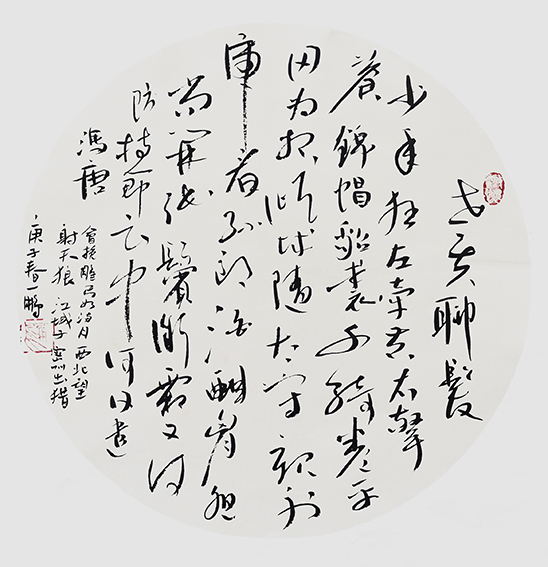 老夫聊髮
少年狂左牵黄右擎
蒼錦帽貂裘千騎卷平
岡为报倾城随太守親射
虎看孙郎酒酣胸胆
尚开张鬢微霜又何
妨持節云中何日遣
馮唐
會挽雕弓如满月西北望
射天狼 江城子密州出猎
庚子春一鹏